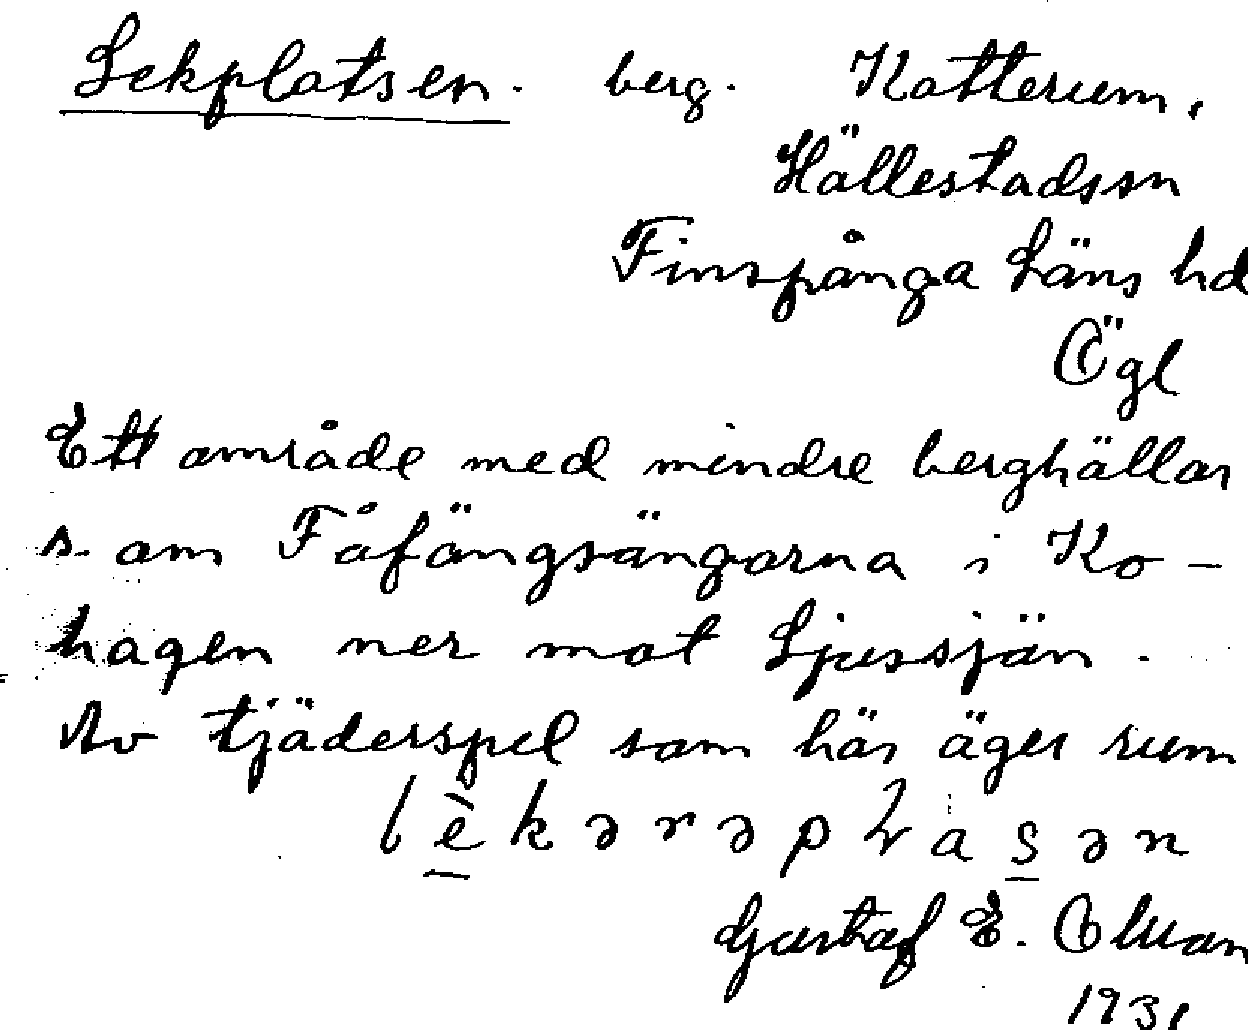 Lekplatsen. berg. Katterum,
Hällestadssn
Finspånga Läns hd
Ögl
Ett område med mindre berghällar
s. om Fåfängsängarna i Ko-
hagen ner mot Ljussjön.
Av tjäderspel som här äger rum
lèkərəpɬasən
Gustaf E. Olsson
1931